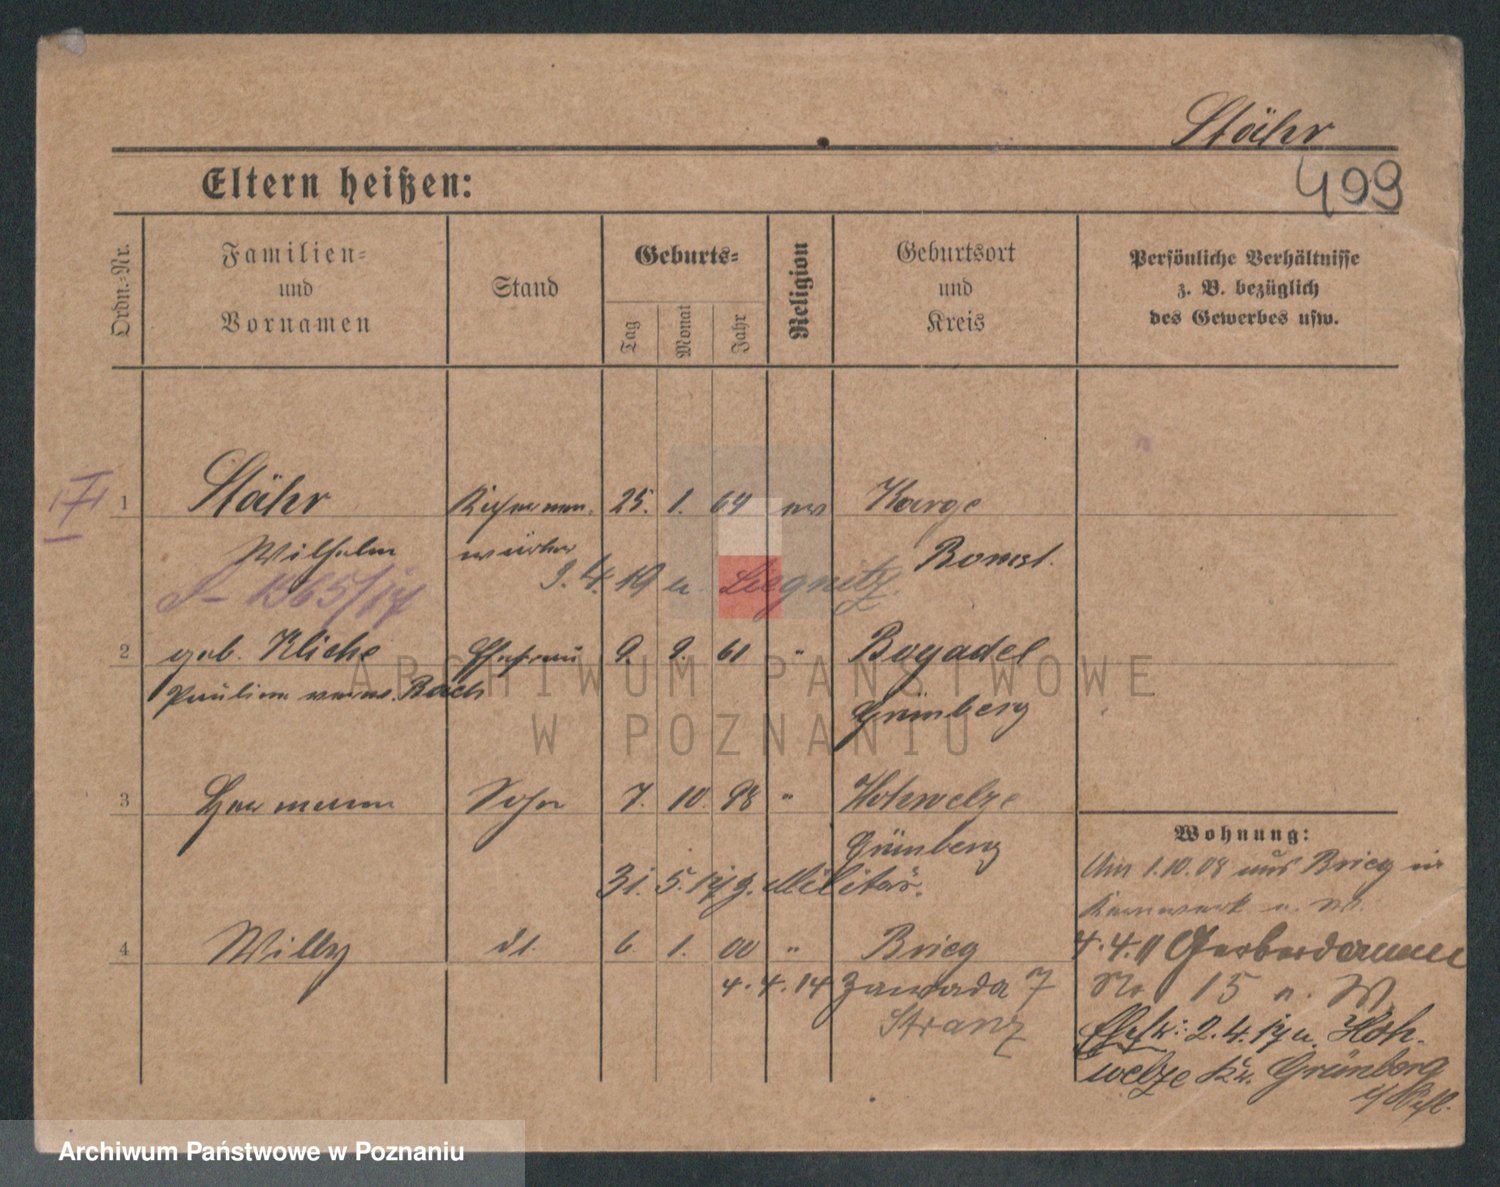 Stähr
499
Eltern heißen:
Ordn.-Nr.
Familien-
und
Vornamen
Stand
Geburts-
Tag
Monat
Jahr
Religion
Geburtsort
und
Kreis
Persönliche Verhältnisse
z. B. bezüglich
des Gewerbes usw.
1 Stähr 25. 1. 64 ev Karge
Wilhelm Bomst.
9. 4. 19 n. Liegnitz.
1365/17
2 geb. Kliche Ehefrau 9. 9. 61 " Boyadel
Pauline verw. Bach Grünberg
3 Hermann Sohn 7. 10. 98 " Hohwelze
Grünberg
31. 5. 17 z. Militär.
4 Willy dt. 6 1. 00 " Brieg
4. 4. 14 Zawada 7
Stranz
Wohnung:
Am 1.10.08 aus Brieg in
4.4.11 Gerberdamm
No 15 n. W.
2. 4. 17 n. Hoh-
welze Kr. Grünberg
ARCHIWUM PAŃSTWOWE
W POZNANIU
Archiwum Państwowe w Poznaniu